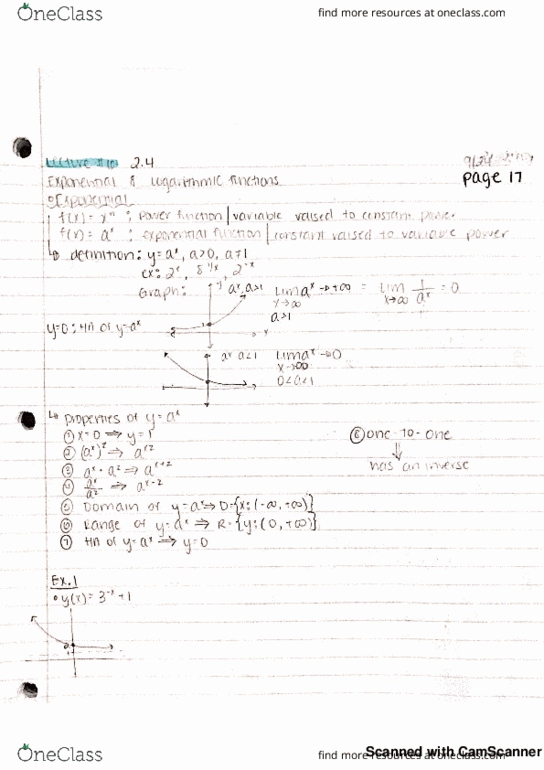 OneClass
find more resources at oneclass.com
Lecture #10 2.4
page 17
Exponential & Logarithmic functions
Exponential
f(x) = xⁿ : power function | variable raised to constant power
f(x) = aˣ : exponential function | constant raised to variable power
↳ definition: y=aˣ, a>0, a≠1
ex: 2ˣ, 8^(1/x), 2⁻ˣ
Graph: y aˣ, a>1 lim aˣ→+∞ = lim 1/aˣ = 0
x→∞ x→∞
a>1
x
y=0: HA of y=aˣ
aˣ a<1 lim aˣ→0
x→∞
0<a<1
↳ properties of y=aˣ
① x=0 ⇒ y=1
② (aˣ)ᶻ ⇒ aˣᶻ
③ aˣ · aᶻ ⇒ aˣ⁺ᶻ
④ aˣ/aᶻ ⇒ aˣ⁻ᶻ
⑤ Domain of y=aˣ ⇒ D={x:(-∞,+∞)}
⑥ Range of y=aˣ ⇒ R={y:(0,+∞)}
⑦ HA of y=aˣ ⇒ y=0
⑧ one-to-one
⇓
has an inverse
Ex.1
• y(x) = 3⁻ˣ+1
OneClass
find more resources at oneclass.com
Scanned with CamScanner